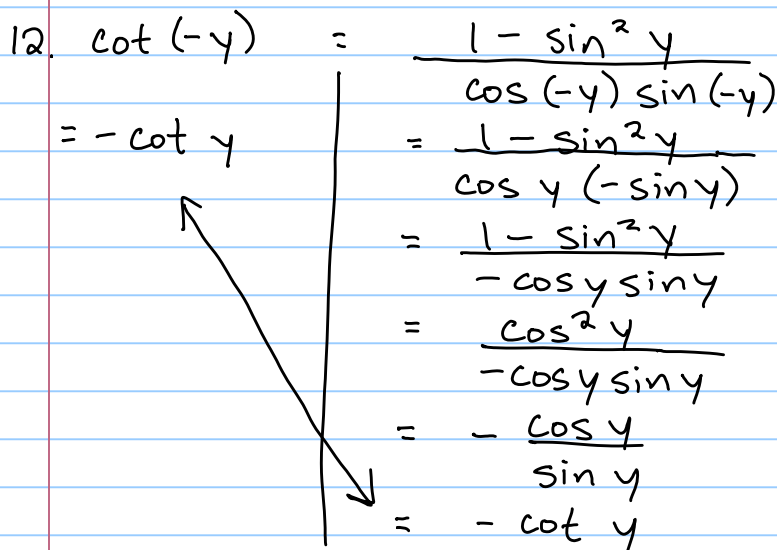 12. cot (-y) = 1 - sin² y
cos (-y) sin (-y)
= - cot y = 1 - sin² y
cos y (- sin y)
= 1 - sin² y
- cos y sin y
= cos² y
- cos y sin y
= - cos y
sin y
= - cot y